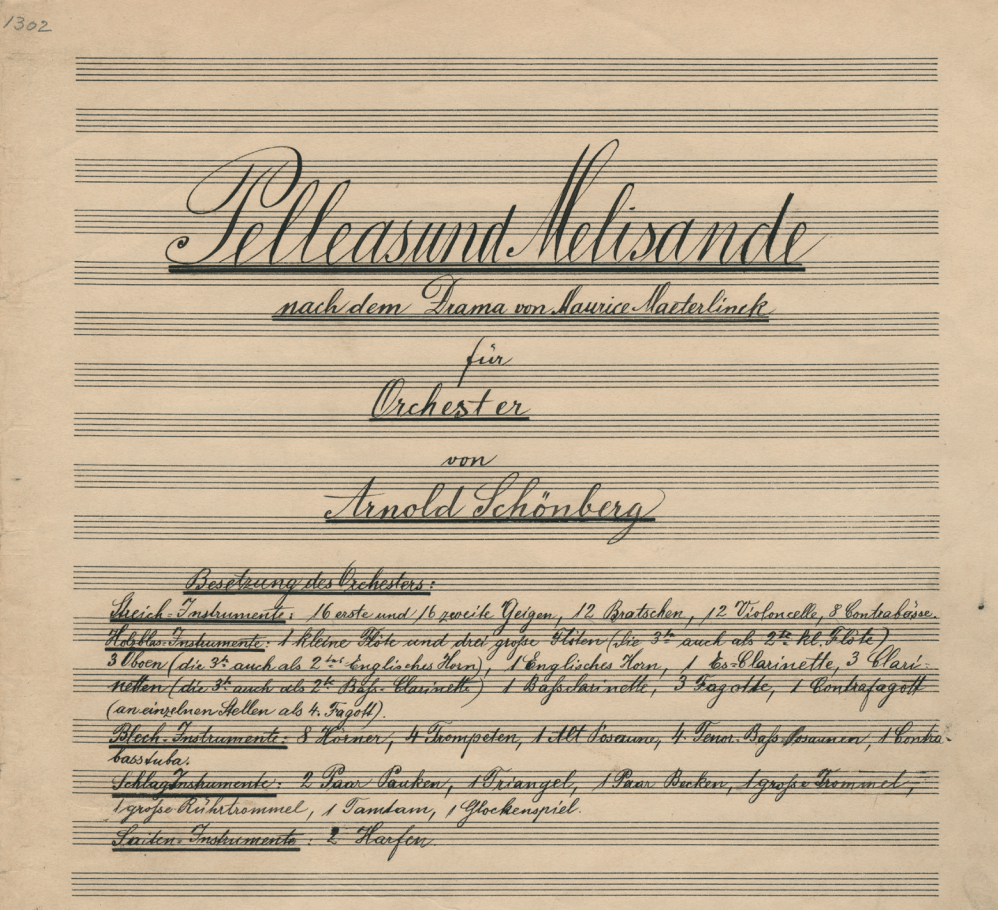 1302
Pelleas und Melisande
nach dem Drama von Maurice Maeterlinck
für
Orchester
von
Arnold Schönberg
Besetzung des Orchesters:
Streich-Instrumente: 16 erste und 16 zweite Geigen, 12 Bratschen, 12 Violoncelle, 8 Contrabässe.
Holzblas-Instrumente: 1 kleine Flöte und drei große Flöten (die 3te auch als 2te kl. Flöte)
3 Oboen (die 3te auch als 2tes Englisches Horn), 1 Englisches Horn, 1 Es-Clarinette, 3 Clari-
netten (die 3te auch als 2te Baß-Clarinette) 1 Baßclarinette, 3 Fagotte, 1 Contrafagott
(an einzelnen Stellen als 4. Fagott).
Blech-Instrumente: 8 Hörner, 4 Trompeten, 1 Alt Posaune, 4 Tenor-Baß Posaunen, 1 Contra-
basstuba.
Schlag Instrumente: 2 Paar Pauken, 1 Triangel, 1 Paar Becken, 1 große Trommel,
1 große Rührtrommel, 1 Tamtam, 1 Glockenspiel.
Saiten-Instrumente: 2 Harfen.